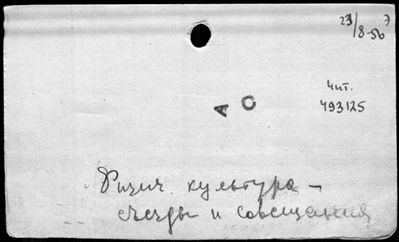 23/8-56
7
А О
Чит.
493125
Физич. культура –
съезды и совещания